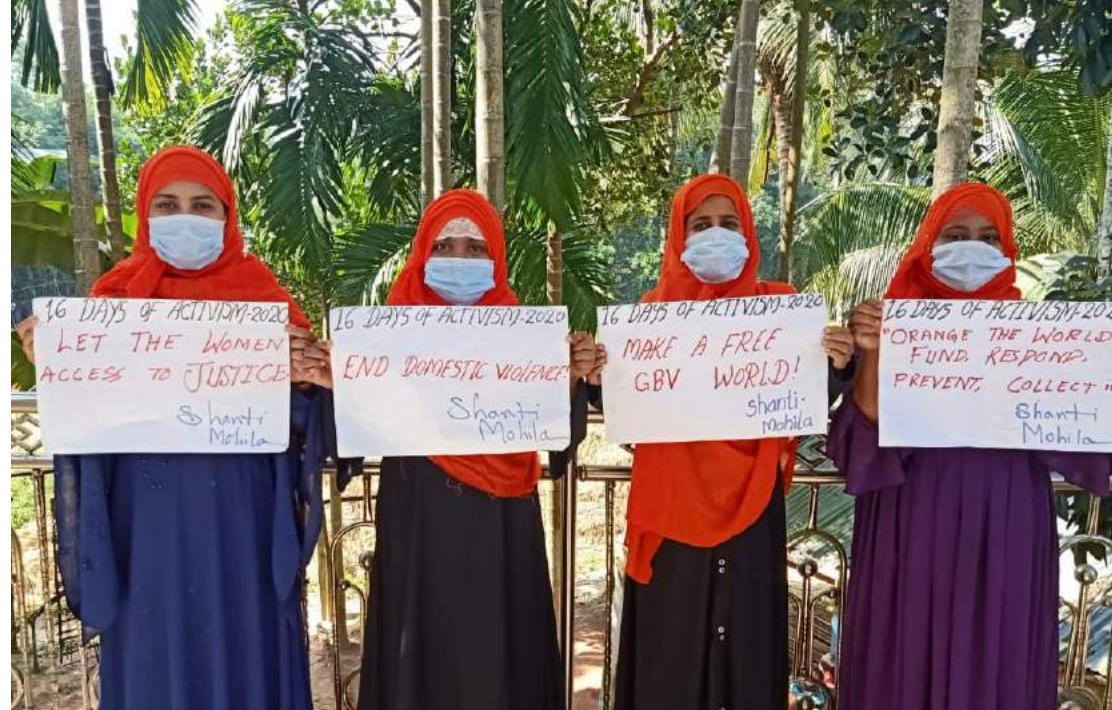 16 DAYS OF ACTIVISM-2020
LET THE WOMEN
ACCESS TO JUSTICE.
Shanti
Mohila
16 DAYS OF ACTIVISM-2020
END DOMESTIC VIOLENCE!
Shanti
Mohila
16 DAYS OF ACTIVISM-2020
MAKE A FREE
GBV WORLD!
Shanti-
Mohila
16 DAYS OF ACTIVISM-20
"ORANGE THE WORLD
FUND, RESPOND,
PREVENT, COLLECT"
Shanti
Mohila